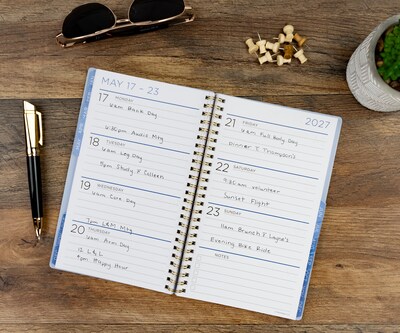 MAY 17 - 23
17 MONDAY
6am Back Day
2:30pm Audit Mtg
18 TUESDAY
6am Leg Day
5pm Study @ Colleen
19 WEDNESDAY
6am Core Day
7pm L&M Mtg
20 THURSDAY
6am Arm Day
12 L&L
4pm Happy Hour
2027
21 FRIDAY
6am Full Body Day
Dinner T. Thompson's
22 SATURDAY
9:30am volunteer
Sunset Flight
23 SUNDAY
11am Brunch @ Layne's
Evening Bike Ride
NOTES